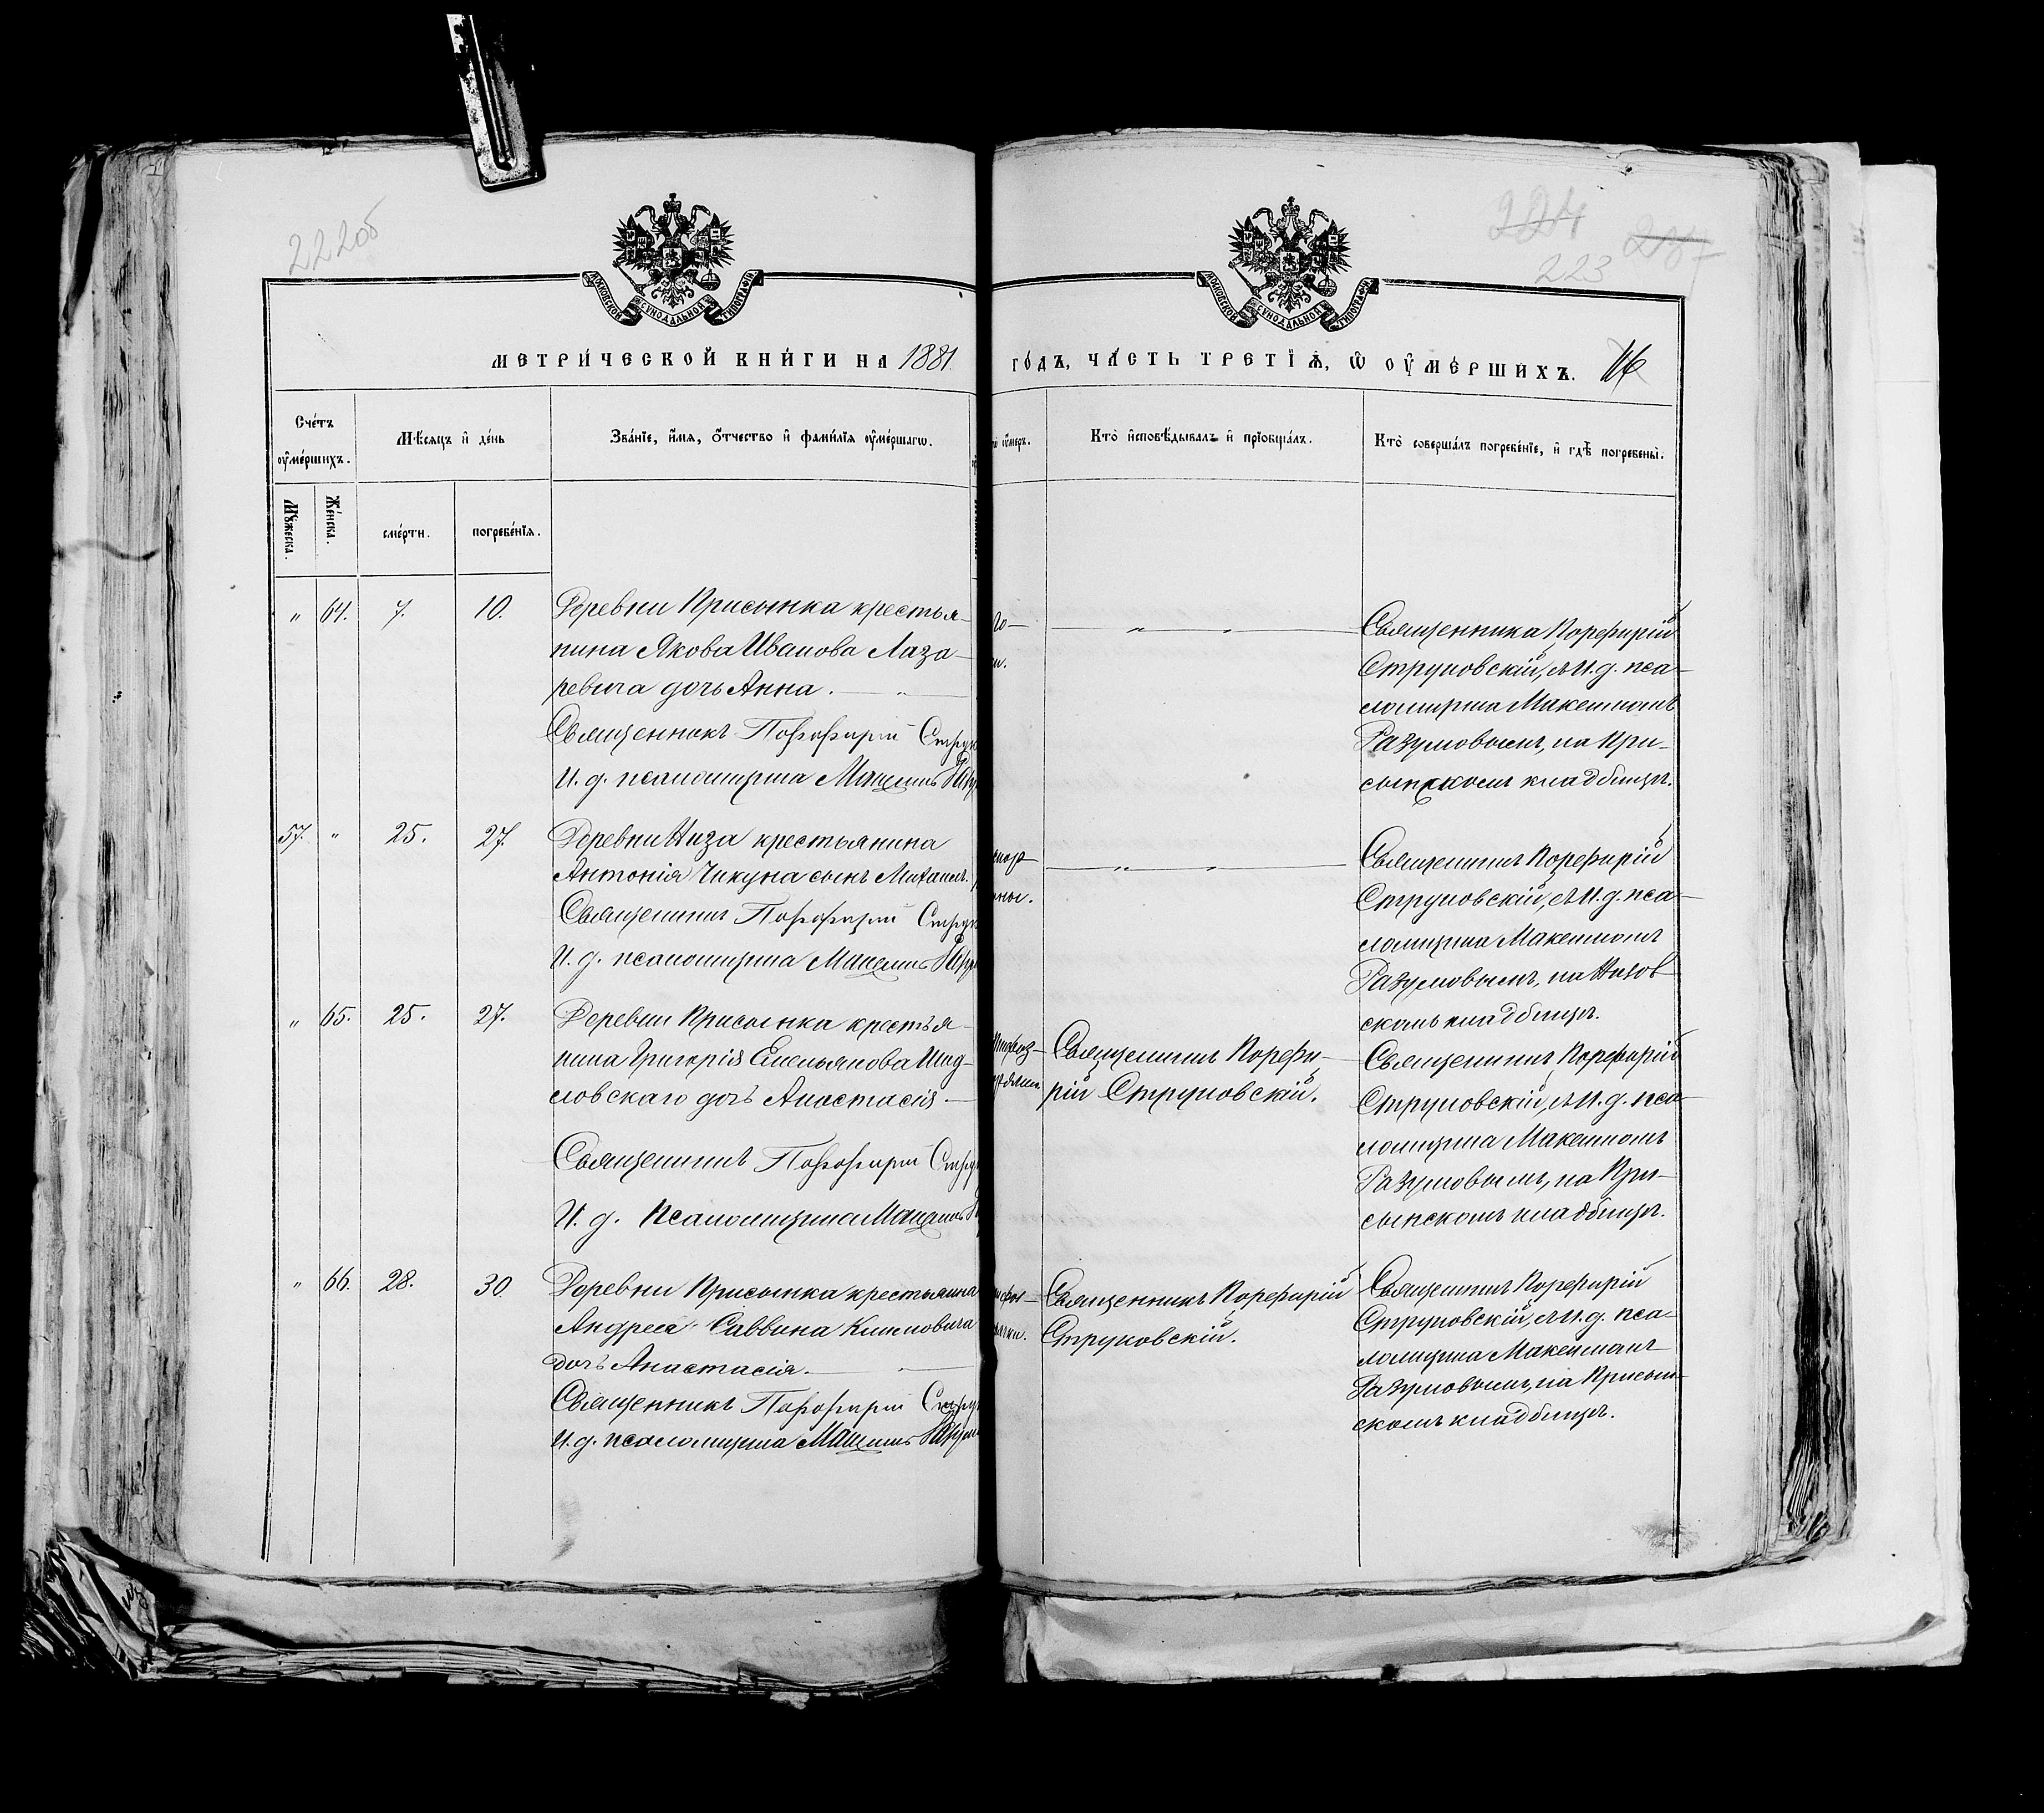 222об
224 237
223
МОСКОВСКОЙ СѴНОДАЛЬНОЙ ТИПОГРАФІИ
МОСКОВСКОЙ СѴНОДАЛЬНОЙ ТИПОГРАФІИ
МЕТРИ́ЧЕСКОЙ КНИ́ГИ НА 1881.
ГО́ДЪ, ЧА́СТЬ ТРЕТЇѦ, Ѡ ОУ҆МЕ́РШИХЪ. 116
Сче́тъ оу҆ме́ршихъ.
Мѣ́сяцъ и҆ де́нь
Зва́нїе, и҆́мя, о҆́тчество и҆ фами́лїя оу҆ме́ршагѡ.
оу҆́меръ.
Кто̀ и҆сповѣ́дывалъ и҆ прїобща́лъ.
Кто̀ соверша́лъ погребе́нїе, и҆ гдѣ̀ погребены̀.
Мꙋ́жеска.
Же́нска.
сме́рти.
погребе́нїя.
„ 64. 7. 10. Деревни Присынка крестья-
нина Якова Иванова Лаза-
ревича дочь Анна. — „ —
Священникъ Порфирій
И. д. псаломщика Максимъ
— „ „ —
Священника Порфирій
Струковскій, съ И. д. пса-
ломщика Максимомъ
Разумовымъ, на При-
сынскомъ кладбищѣ.
57. „ 25. 27. Деревни Низа крестьянина
Антонія Чикуна сынъ Михаилъ.
Священникъ Порфирій
И. д. псаломщика Максимъ
— „ „ —
Священникъ Порфирій
Струковскій, съ И. д. пса-
ломщика Максимомъ
Разумовымъ, на Низов-
скомъ кладбищѣ.
„ 65. 25. 27. Деревни Присынка крестья-
нина Григорія Емельянова Шид-
ловскаго дочь Анастасія —
Священникъ Порфирій
И. д. Псаломщика Максимъ
Священникъ Порфи-
рій Струковскій.
Священникъ Порфирій
Струковскій, съ И. д. пса-
ломщика Максимомъ
Разумовымъ, на При-
сынскомъ кладбищѣ.
„ 66. 28. 30. Деревни Присынка крестьянина
Андрея Саввина Климовича
дочь Анастасія. —
Священникъ Порфирій
И. д. псаломщика Максимъ
Священникъ Порфирій
Струковскій.
Священникъ Порфирій
Струковскій, съ И. д. пса-
ломщика Максимомъ
Разумовымъ, на Присын-
скомъ кладбищѣ.